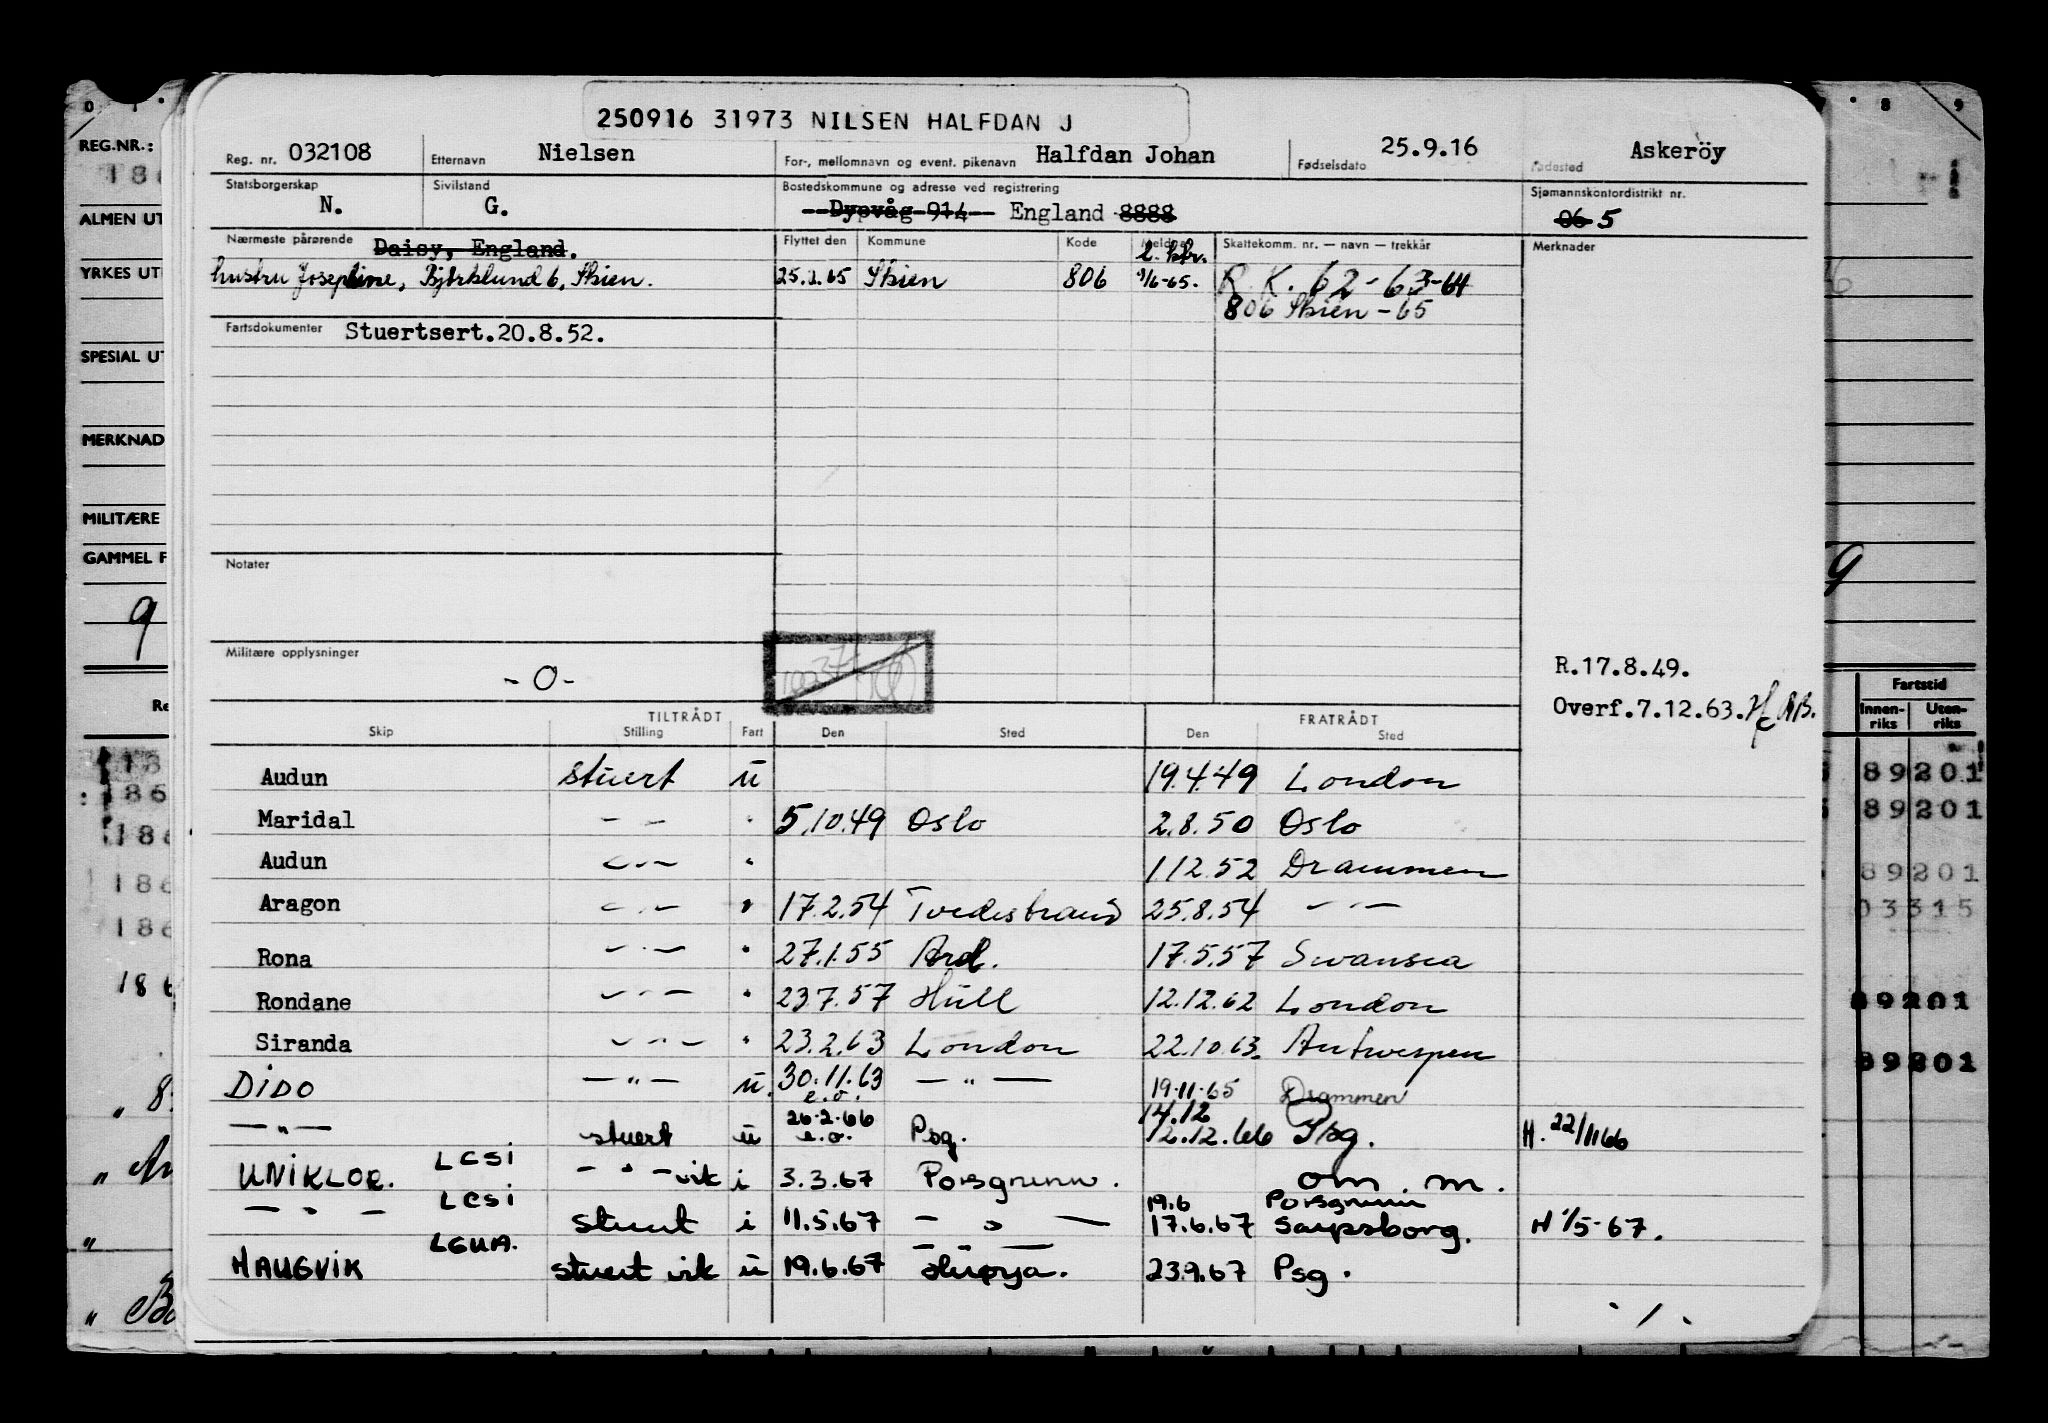 250916 31973 NILSEN HALFDAN J
Reg. nr. 032108 Etternavn Nielsen For-, mellomnavn og event. pikenavn Halfdan Johan Fødselsdato 25.9.16 Fødested Askeröy
Statsborgerskap N. Sivilstand G. Bostedskommune og adresse ved registrering Dypvåg 914 England 8888 Sjømannskontordistrikt nr. 06 5
Nærmeste pårørende Daisy, England. Flyttet den Kommune Kode Skattekomm. nr. — navn — trekkår Merknader
hustru Josephine, Bjørklund 6, Skien. 25.2.65 Skien 806 9/6-65. R.K. 62-63-64
806 Skien -65
Fartsdokumenter Stuertsert.20.8.52.
Notater
Militære opplysninger -0-
R.17.8.49.
Overf.7.12.63.
TILTRÅDT FRATRÅDT
Skip Stilling Fart Den Sted Den Sted
Audun stuert ü 19.4.49 London
Maridal — — " 5.10.49 Oslo 2.8.50 Oslo
Audun — " — " 1 12.52 Drammen
Aragon — " — " 17.2.54 Tvedestrand 25.8.54 — " —
Rona — " — " 27.1.55 Ard. 17.5.57 Swansea
Rondane — " — " 23.7.57 Hull 12.12.62 London
Siranda — " — " 23.2.63 London 22.10.63. Antwerpen
DIDO — " — ü. 30.11.63 — " — 19.11.65 Drammen
e.o.
— " — stuert ü 26.2.66 e.o. Psg. 14.12 12.12.66 Psg. H. 22/11 66
UNIKLOR. LCSI — " — vik i 3.3.67 Porsgrunn. om. m.
— " — LCSI stuert i 11.5.67 — " — 19.6 Porsgrunn
17.6.67 Sarpsborg. H 1/5-67.
HAUGVIK LGUA. stuert vik ü 19.6.67 Herøya. 23.9.67 Psg.
./.
REG.NR.:
186
ALMEN UT
YRKES UT
SPESIAL UT
MERKNAD
MILITÆRE
GAMMEL F
9
Fartstid
Innen-riks Uten-riks
89201
89201
89201
03315
89201
89201